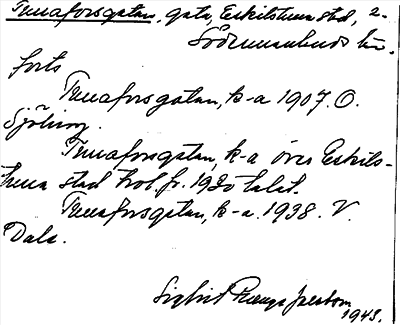 Tunaforsgatan, gata, Eskilstuna stad, 2.
Södermanlands län.
forts
Tunaforsgatan, k-a 1907. O.
Sjöberg.
Tunaforsgatan, k-a över Eskils-
tuna stad trol. fr. 1920 talet.
Tunaforsgatan, k-a. 1938. V.
Dala.
Sigbrit
1943.